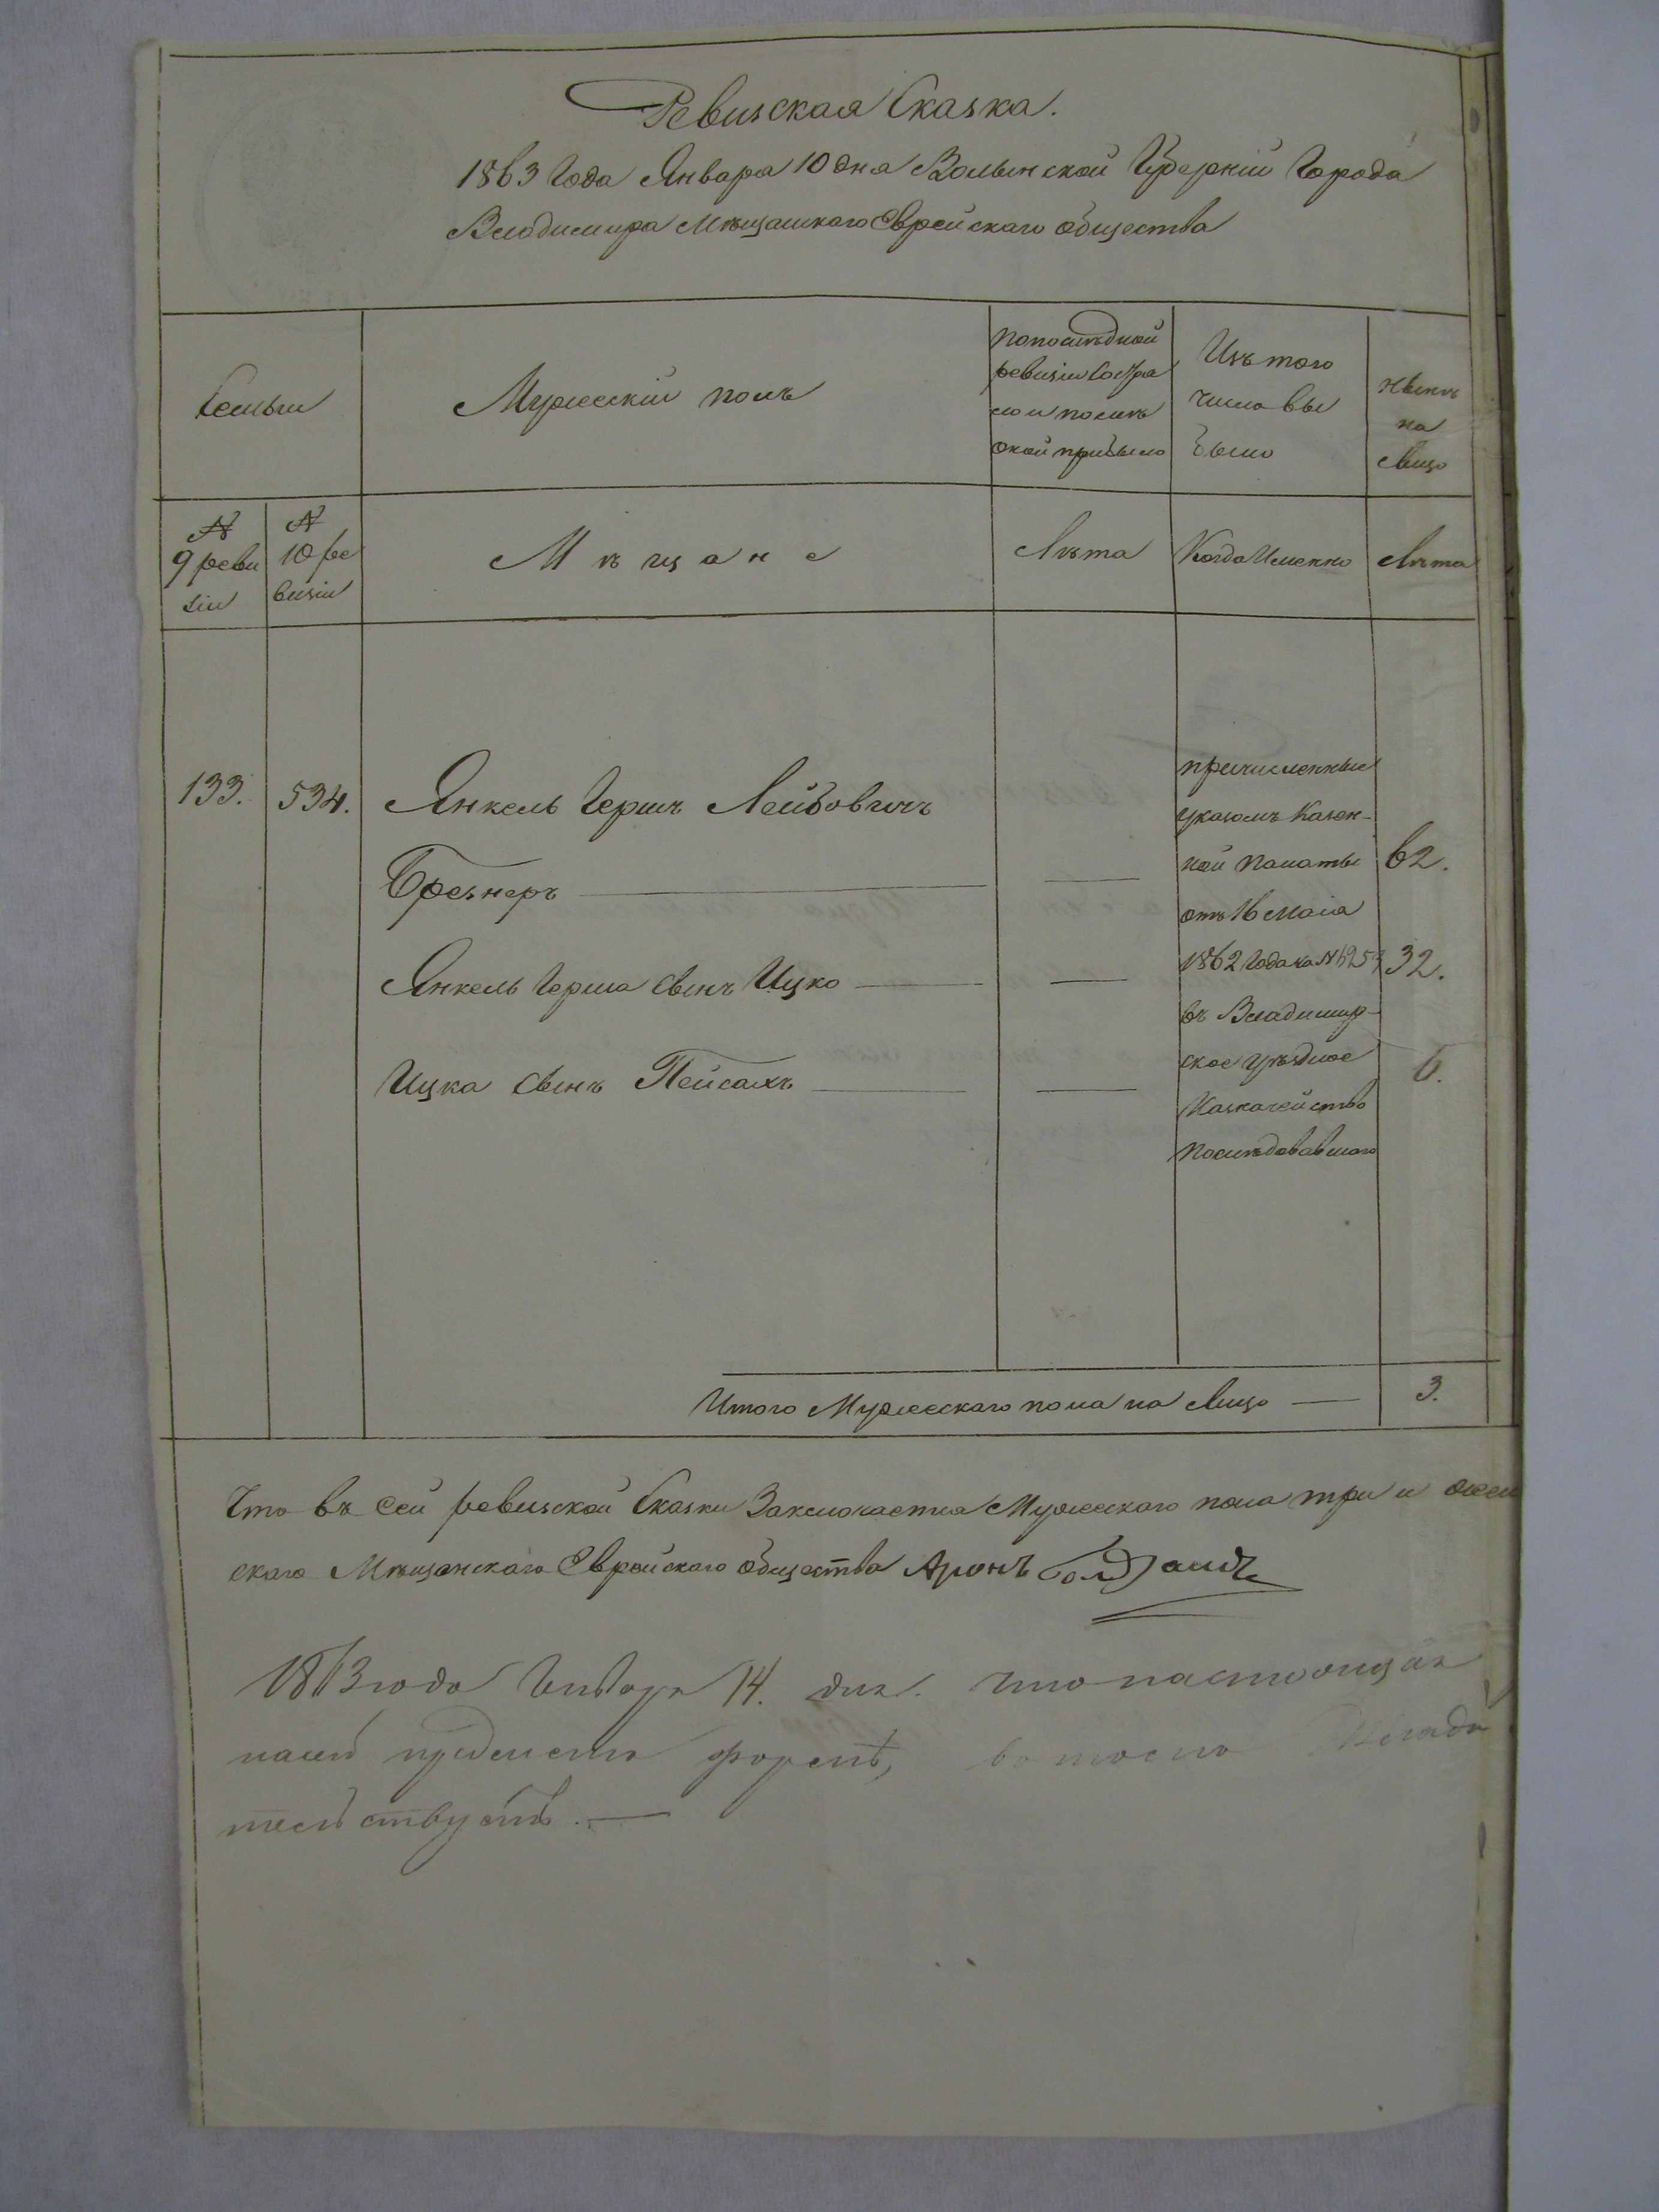 Ревизская Сказка.
1863 Года Января 10 дня Волынской Губерніи Города
Владимира Мѣщанскаго Еврейскаго общества
Семьи
Мужескій полъ
По послѣдной
ревизіи Состоя
ло и послѣ
оной прибыло
Изъ того
числа вы
было
нынѣ
на
Лицо
№
9 реви
зіи
№
10 ре
визіи
Мѣщане
Лѣта
Когда Именно
Лѣта
133.
534.
Янкель Гершъ Лейбовичъ
Брезнеръ
Янкель Герша Сынъ Ицко
Ицка Сынъ Пейсахъ
причисленные
указомъ Казен-
ной Палаты
отъ 16 Маія
1862 Года за №
въ Владимир-
ское уѣздное
Казначейство
Послѣдовавшаго
62.
32.
6.
Итого Мужескаго пола на Лицо
3.
Что въ Сей ревизской Сказки Заключается Мужескаго пола три и
скаго Мѣщанскаго Еврейскаго общества Аронъ
1863 года Января 14. дня. что настоящая
форме, въ томъ
тельствуетъ.